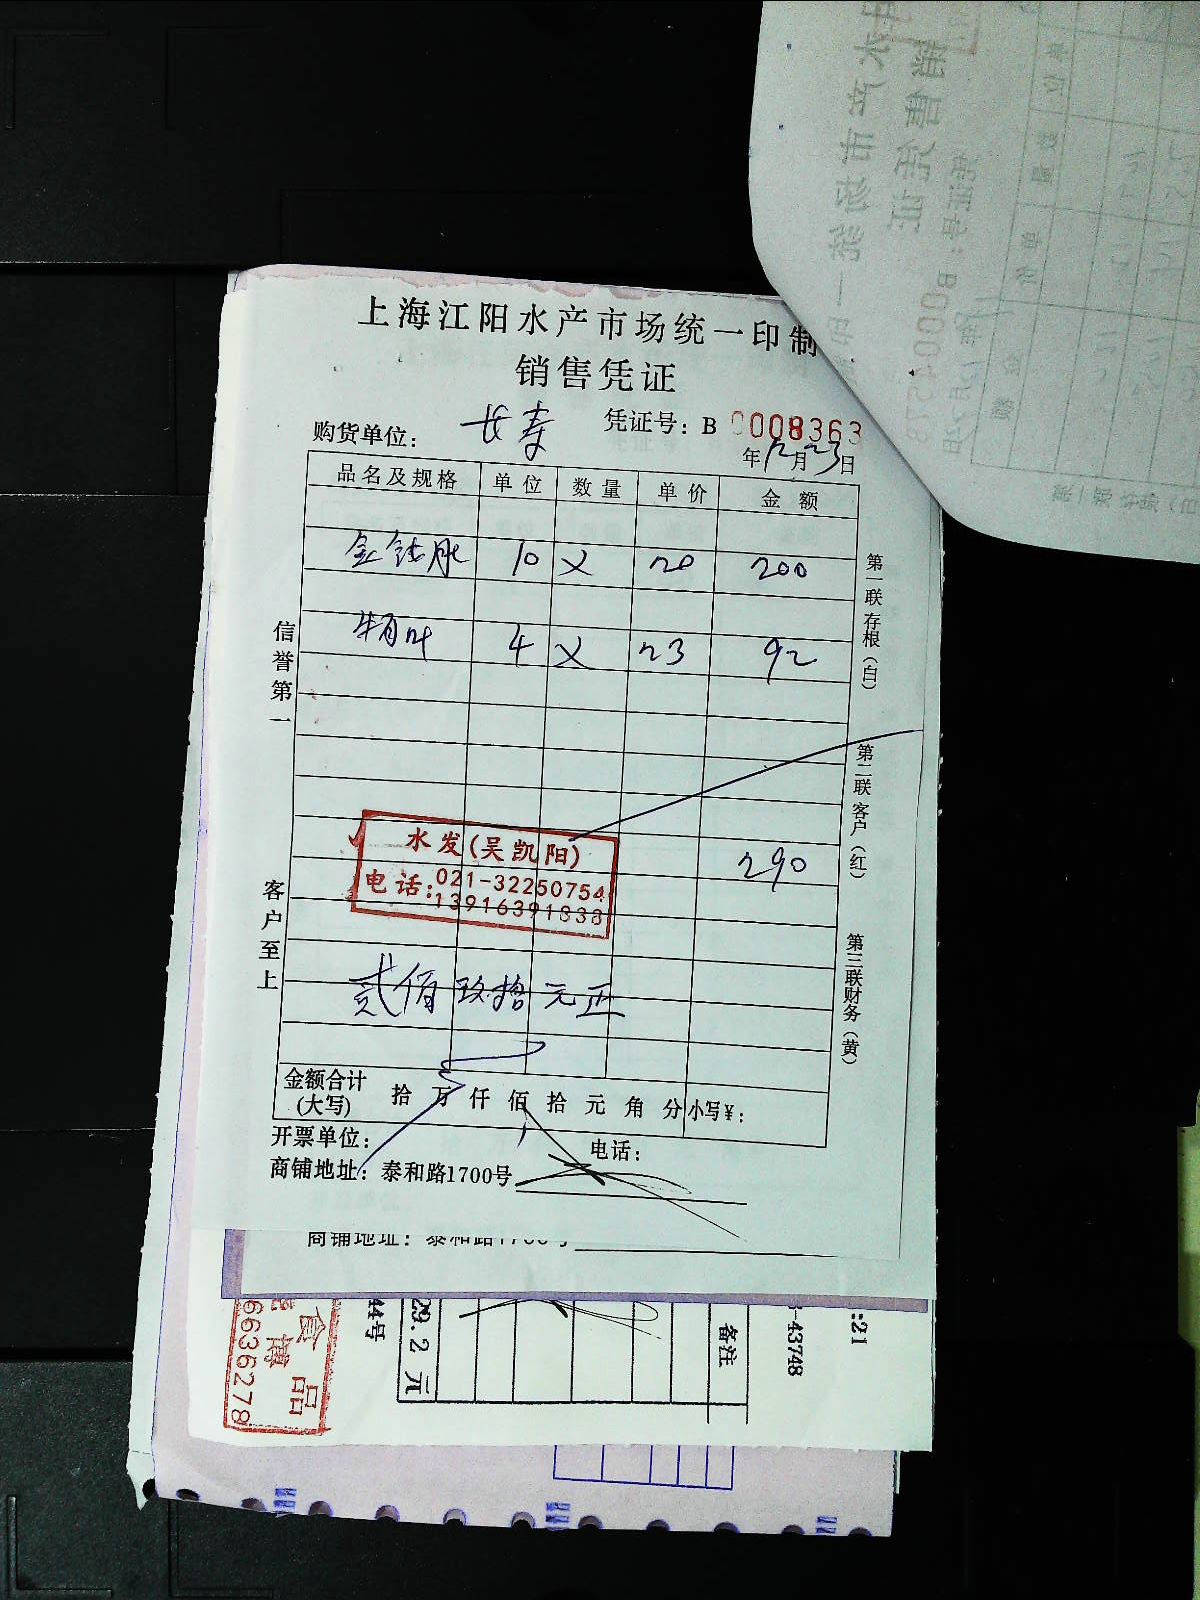 上海江阳水产市场统一印制
销售凭证
购货单位： 长寿 凭证号：B 0008363
年12月23日
品名及规格 单位 数量 单价 金额
金钱肚 10 × 20 200
牛百叶 4 × 23 92
290
水发(吴凯阳)
电话：021-32250754
13916391838
贰佰玖拾元正
金额合计(大写) 拾 万 仟 佰 拾 元 角 分 小写¥：
开票单位： 电话：
商铺地址：泰和路1700号
信誉第一
客户至上
第一联存根（白）
第二联客户（红）
第三联财务（黄）
商铺地址：泰和路1700号
食品
博
6636278
44号
29.2 元
备注
-43748
:21